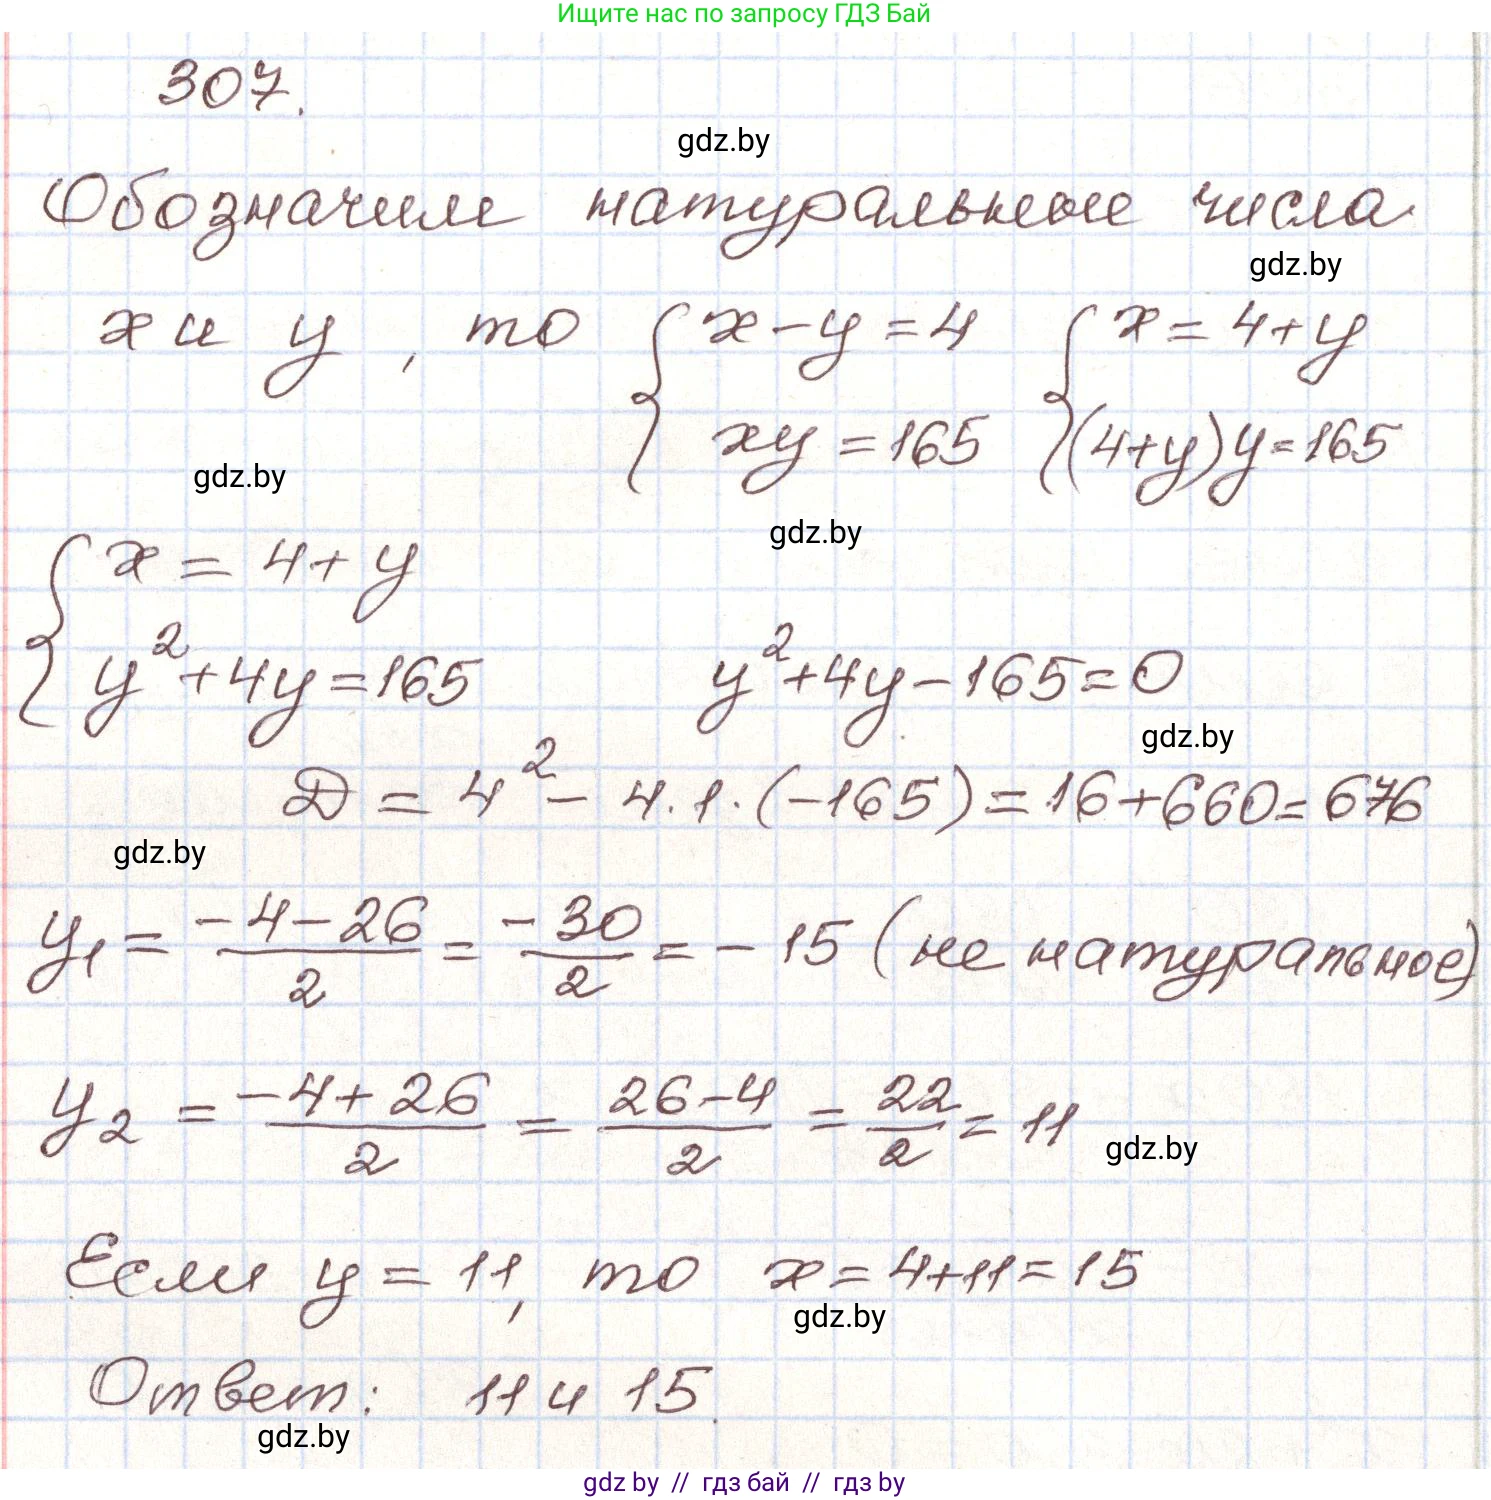 Ищите нас по запросу ГДЗ Бай
307.
gdz.by
Обозначим натуральные числа
gdz.by
x и y, то { x - y = 4 { x = 4 + y
xy = 165 (4+y)y = 165
gdz.by
gdz.by
{ x = 4 + y
y² + 4y = 165 y² + 4y - 165 = 0
gdz.by
D = 4² - 4 · 1 · (-165) = 16 + 660 = 676
gdz.by
y₁ = (-4-26)/2 = -30/2 = -15 (не натуральное)
y₂ = (-4+26)/2 = (26-4)/2 = 22/2 = 11
gdz.by
Если y = 11, то x = 4+11 = 15
gdz.by
Ответ: 11 и 15.
gdz.by
gdz by // гдз бай // гдз by